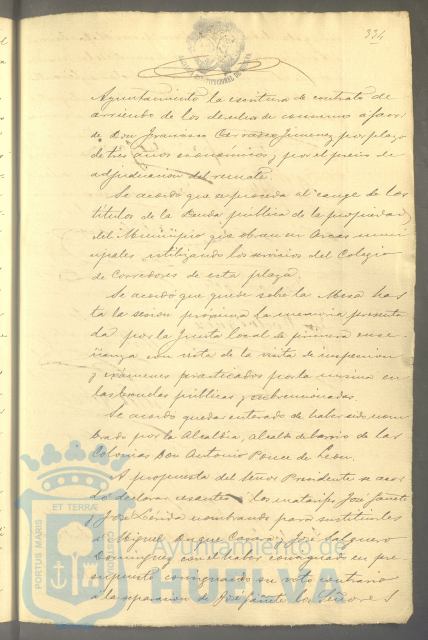 334
Ayuntamiento la escritura de contrato de
arriendo de los derechos de consumo a favor
de Don Francisco Carrasco Jimenez por plazo
de tres años económicos y por el precio de
adjudicacion del remate.
Se acordó que se proceda al cange de los
titulos de la Deuda publica de la propiedad
del Municipio que obran en Arcas muni-
cipales utilizando los servicios del Colegio
de Corredores de esta plaza.
Se acordó que quede sobre la Mesa has
ta la sesion próxima la memoria presenta
da por la Junta local de primera ense-
ñanza con vista de la visita de inspeccion
y exámenes practicados por la misma en
las escuelas públicas y subvencionadas.
Se acordó quedar enterado de haber sido nom
brado por la Alcaldia, alcalde de barrio de las
Colonias Don Antonio Ponce de Leon.
A propuesta del Señor Presidente se acor
dó declarar cesantes á los matarifes José
y José nombrando para sustituirles
á Miguel Duque y José Salguero
Dominguez con el haber consignado en pre
supuesto consignando su voto contrario
á la separacion de José los Señores
PORTUS MARIS
ET TERRÆ
Ayuntamiento de
HUELVA